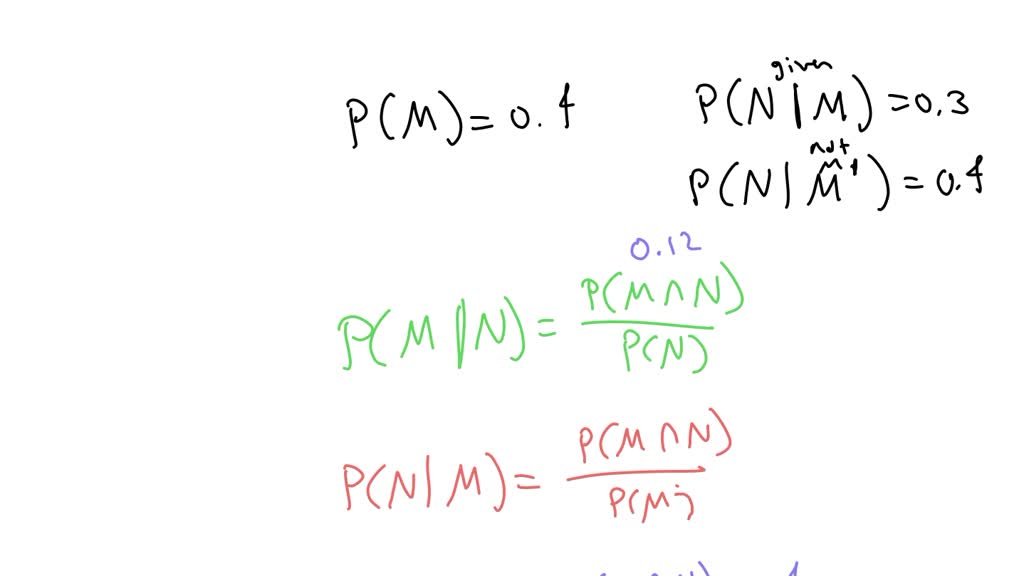 P(M) = 0.4
given
P(N | M) = 0.3
not
P(N | M') = 0.4
0.12
P(M | N) = P(M ∩ N) / P(N)
P(N | M) = P(M ∩ N) / P(M)